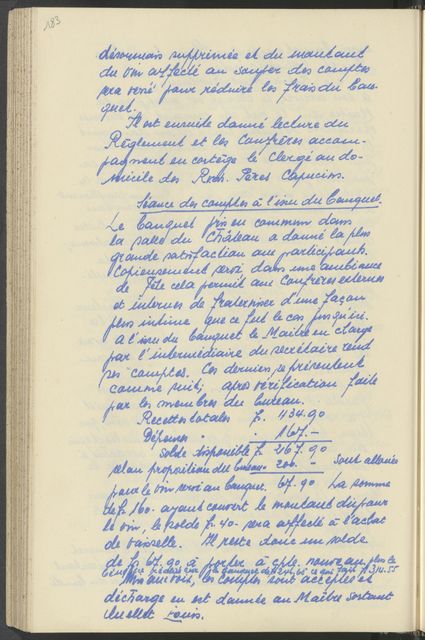 183
désormais supprimée et du montant
du vin affecté au souper des comptes
sera versé pour réduire les frais du Ban-
quet.
Il est ensuite donné lecture du
Règlement et les Confrères accom-
pagnent en cortège le Clergé au do-
micile des Revds. Pères Capucins.
Séance des comptes à l'issue du Banquet.
Le banquet pris en commun dans
la salle du Château a donné la plus
grande satisfaction aux participants.
Copieusement servi dans une ambiance
de fête cela permit aux Confrères externes
et internes de fraterniser d'une façon
plus intime que ce fut le cas jusqu'ici.
A l'issue du banquet le Maître en charge
par l'intermédiaire du secrétaire rend
ses comptes. Ces derniers se présentent
comme suit; après vérification faite
par les membres du bureau.
Recettes totales f. 434.90
Dépenses " 167.-
Solde disponible f. 267.90
selon proposition du bureau 200.- sont alloués
pour le vin servi au banquet. 67.90 La somme
de f. 160.- ayant couvert le montant dû pour
le vin, le solde f. 40.- sera affecté à l'achat
de vaisselle. Il reste donc un solde
de f. 67.90 à porter à cpte. nouveau, plus
la Banque ce qui fait f. 314.55
Mis aux voix, les comptes sont acceptés et
décharge en est donnée au Maître sortant